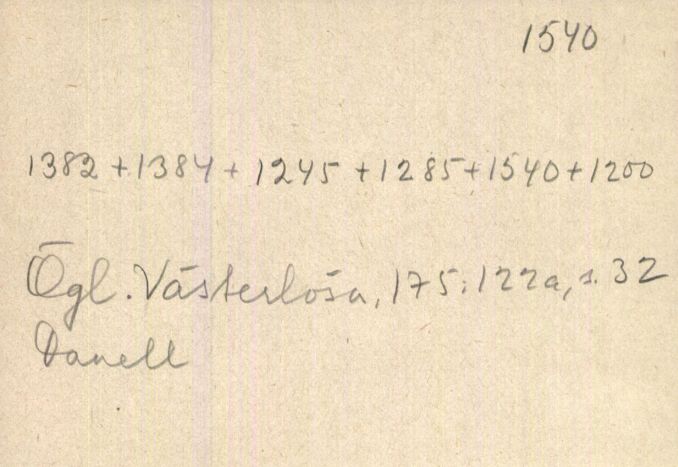 1540
1382 + 1384 + 1245 + 1285 + 1540 + 1200
Ögl. Västerlösa, 175:122a, s. 32
Danell